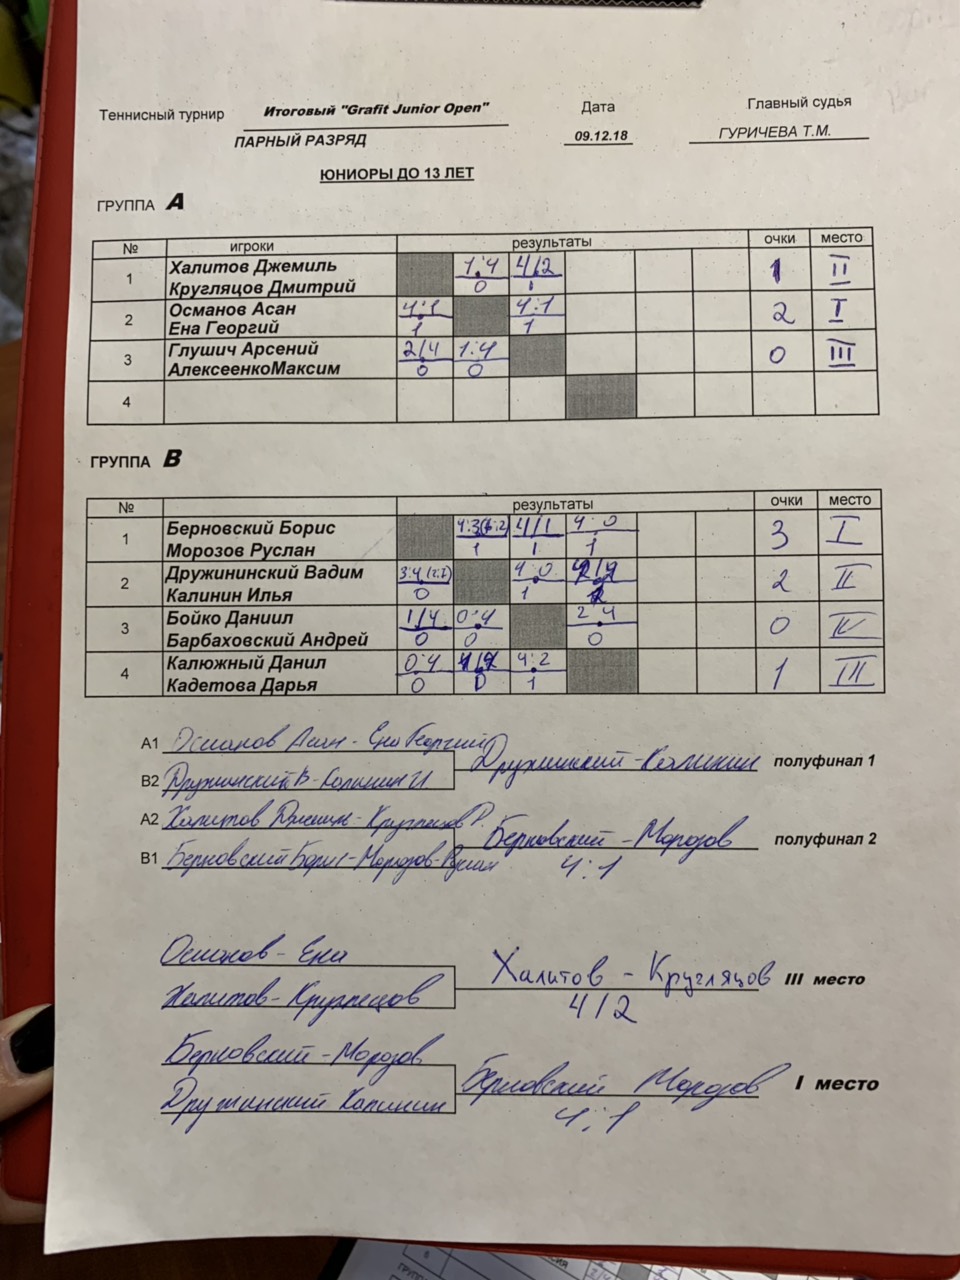 Теннисный турнир Итоговый "Grafit Junior Open" Дата Главный судья
ПАРНЫЙ РАЗРЯД 09.12.18 ГУРИЧЕВА Т.М.
ЮНИОРЫ ДО 13 ЛЕТ
ГРУППА A
№ игроки результаты очки место
1 Халитов Джемиль Кругляцов Дмитрий 1:4 0 4/2 1 1 II
2 Османов Асан Ена Георгий 4:1 1 4:1 1 2 I
3 Глушич Арсений АлексеенкоМаксим 2/4 0 1:4 0 0 III
4
ГРУППА B
№ результаты очки место
1 Берновский Борис Морозов Руслан 4:3 1 4/1 1 4:0 1 3 I
2 Дружининский Вадим Калинин Илья 3:4 0 4:0 1 2 II
3 Бойко Даниил Барбаховский Андрей 1/4 0 0:4 0 2:4 0 0 IV
4 Калюжный Данил Кадетова Дарья 0:4 0 0 4:2 1 1 III
А1 Османов Асан - Ена Георгий
Дружинский - Калинин полуфинал 1
В2 Дружинский В - Калинин И
А2 Халитов - Р.
Берновский - Морозов полуфинал 2
В1 Берновский Борис - Морозов - Руслан 4:1
Османов - Ена
Халитов - Кругляцов III место
Халитов - Круглецов 4/2
Берновский - Морозов
Берновский Морозов I место
Дружинский Калинин 4:1